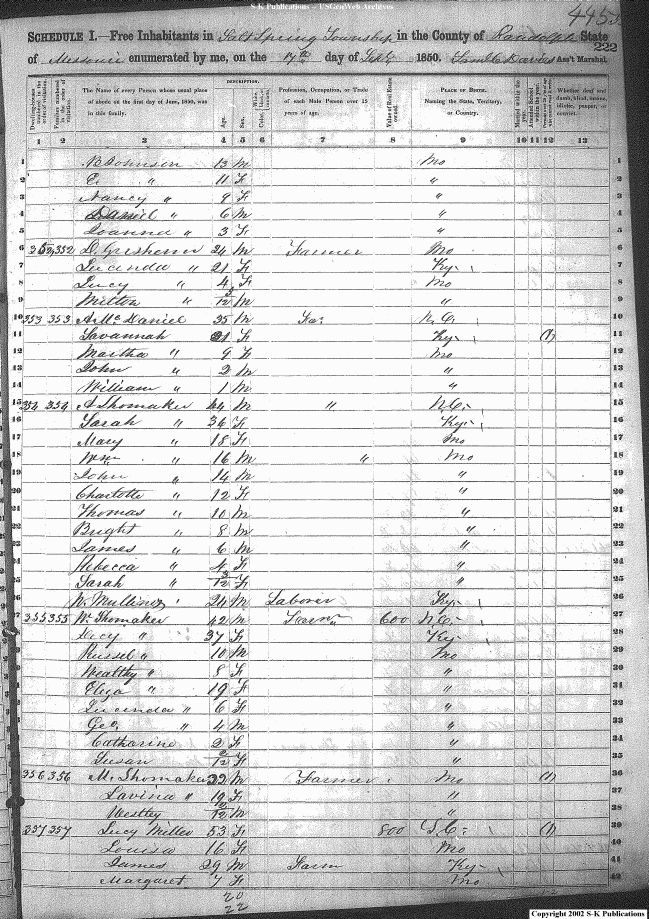 S-K Publications - USGenWeb Archives
445
SCHEDULE I.—Free Inhabitants in Salt Spring Township in the County of Randolph State
222
of Missouri enumerated by me, on the 17th day of Sept 1850. Saml C Davis Ass't Marshal.
Dwelling-houses numbered in the order of visitation.
Families numbered in the order of visitation.
The Name of every Person whose usual place of abode on the first day of June, 1850, was in this family.
DESCRIPTION.
Age.
Sex.
Color,
Profession, Occupation, or Trade of each Male Person over 15 years of age.
Value of Real Estate owned.
PLACE OF BIRTH. Naming the State, Territory, or Country.
Married within the year.
Attended School within the year.
Whether deaf and dumb, blind, insane, idiotic, pauper, or convict.
1 2 3 4 5 6 7 8 9 10 11 12 13
1 B Johnson 13 M Mo 1
2 E. " 11 F " 2
3 Nancy " 9 F " 3
4 Daniel " 6 M " 4
5 Joanna " 3 F " 5
6 352 352 D. Gresham 24 M Farmer Mo 6
7 Lucinda " 21 F Ky 7
8 Lucy " 4 F Mo 8
9 Milton " /12 M " 9
10 353 353 A Mc Daniel 35 M Fa: N.C. 10
11 Savannah 21 F Ky (1) 11
12 Martha " 9 F Mo 12
13 John " 2 M " 13
14 William " 1 M " 14
15 354 354 A Shomaker 44 M " N.C. 15
16 Sarah " 36 F Ky 16
17 Mary " 18 F Mo 17
18 Wm " 16 M " Mo 18
19 John " 14 M " 19
20 Charlotte " 12 F " 20
21 Thomas " 10 M " 21
22 Bright " 8 M " 22
23 James " 6 M " 23
24 Rebecca " 4 F " 24
25 Sarah " /12 F " 25
26 W. Mullins 24 M Laborer Ky 26
27 355 355 Wm Shomaker 42 M Farm 600 N.C. 27
28 Lucy " 37 F Ky 28
29 Russel " 10 M Mo 29
30 Wealthy " 8 F " 30
31 Eliza " 19 F " 31
32 Lucinda " 6 F " 32
33 Geo. " 4 M " 33
34 Catharine 2 F " 34
35 Susan /12 F " 35
36 356 356 M. Shomaker 22 M Farmer Mo (1) 36
37 Lavina " 19 F " 37
38 Westley /12 M " 38
39 357 357 Lucy Miller 53 F 800 S.C. (1) 39
40 Louisa 16 F Mo 40
41 James 29 M Farm Ky 41
42 Margaret 7 F Mo 42
20
22
Copyright 2002 S-K Publications